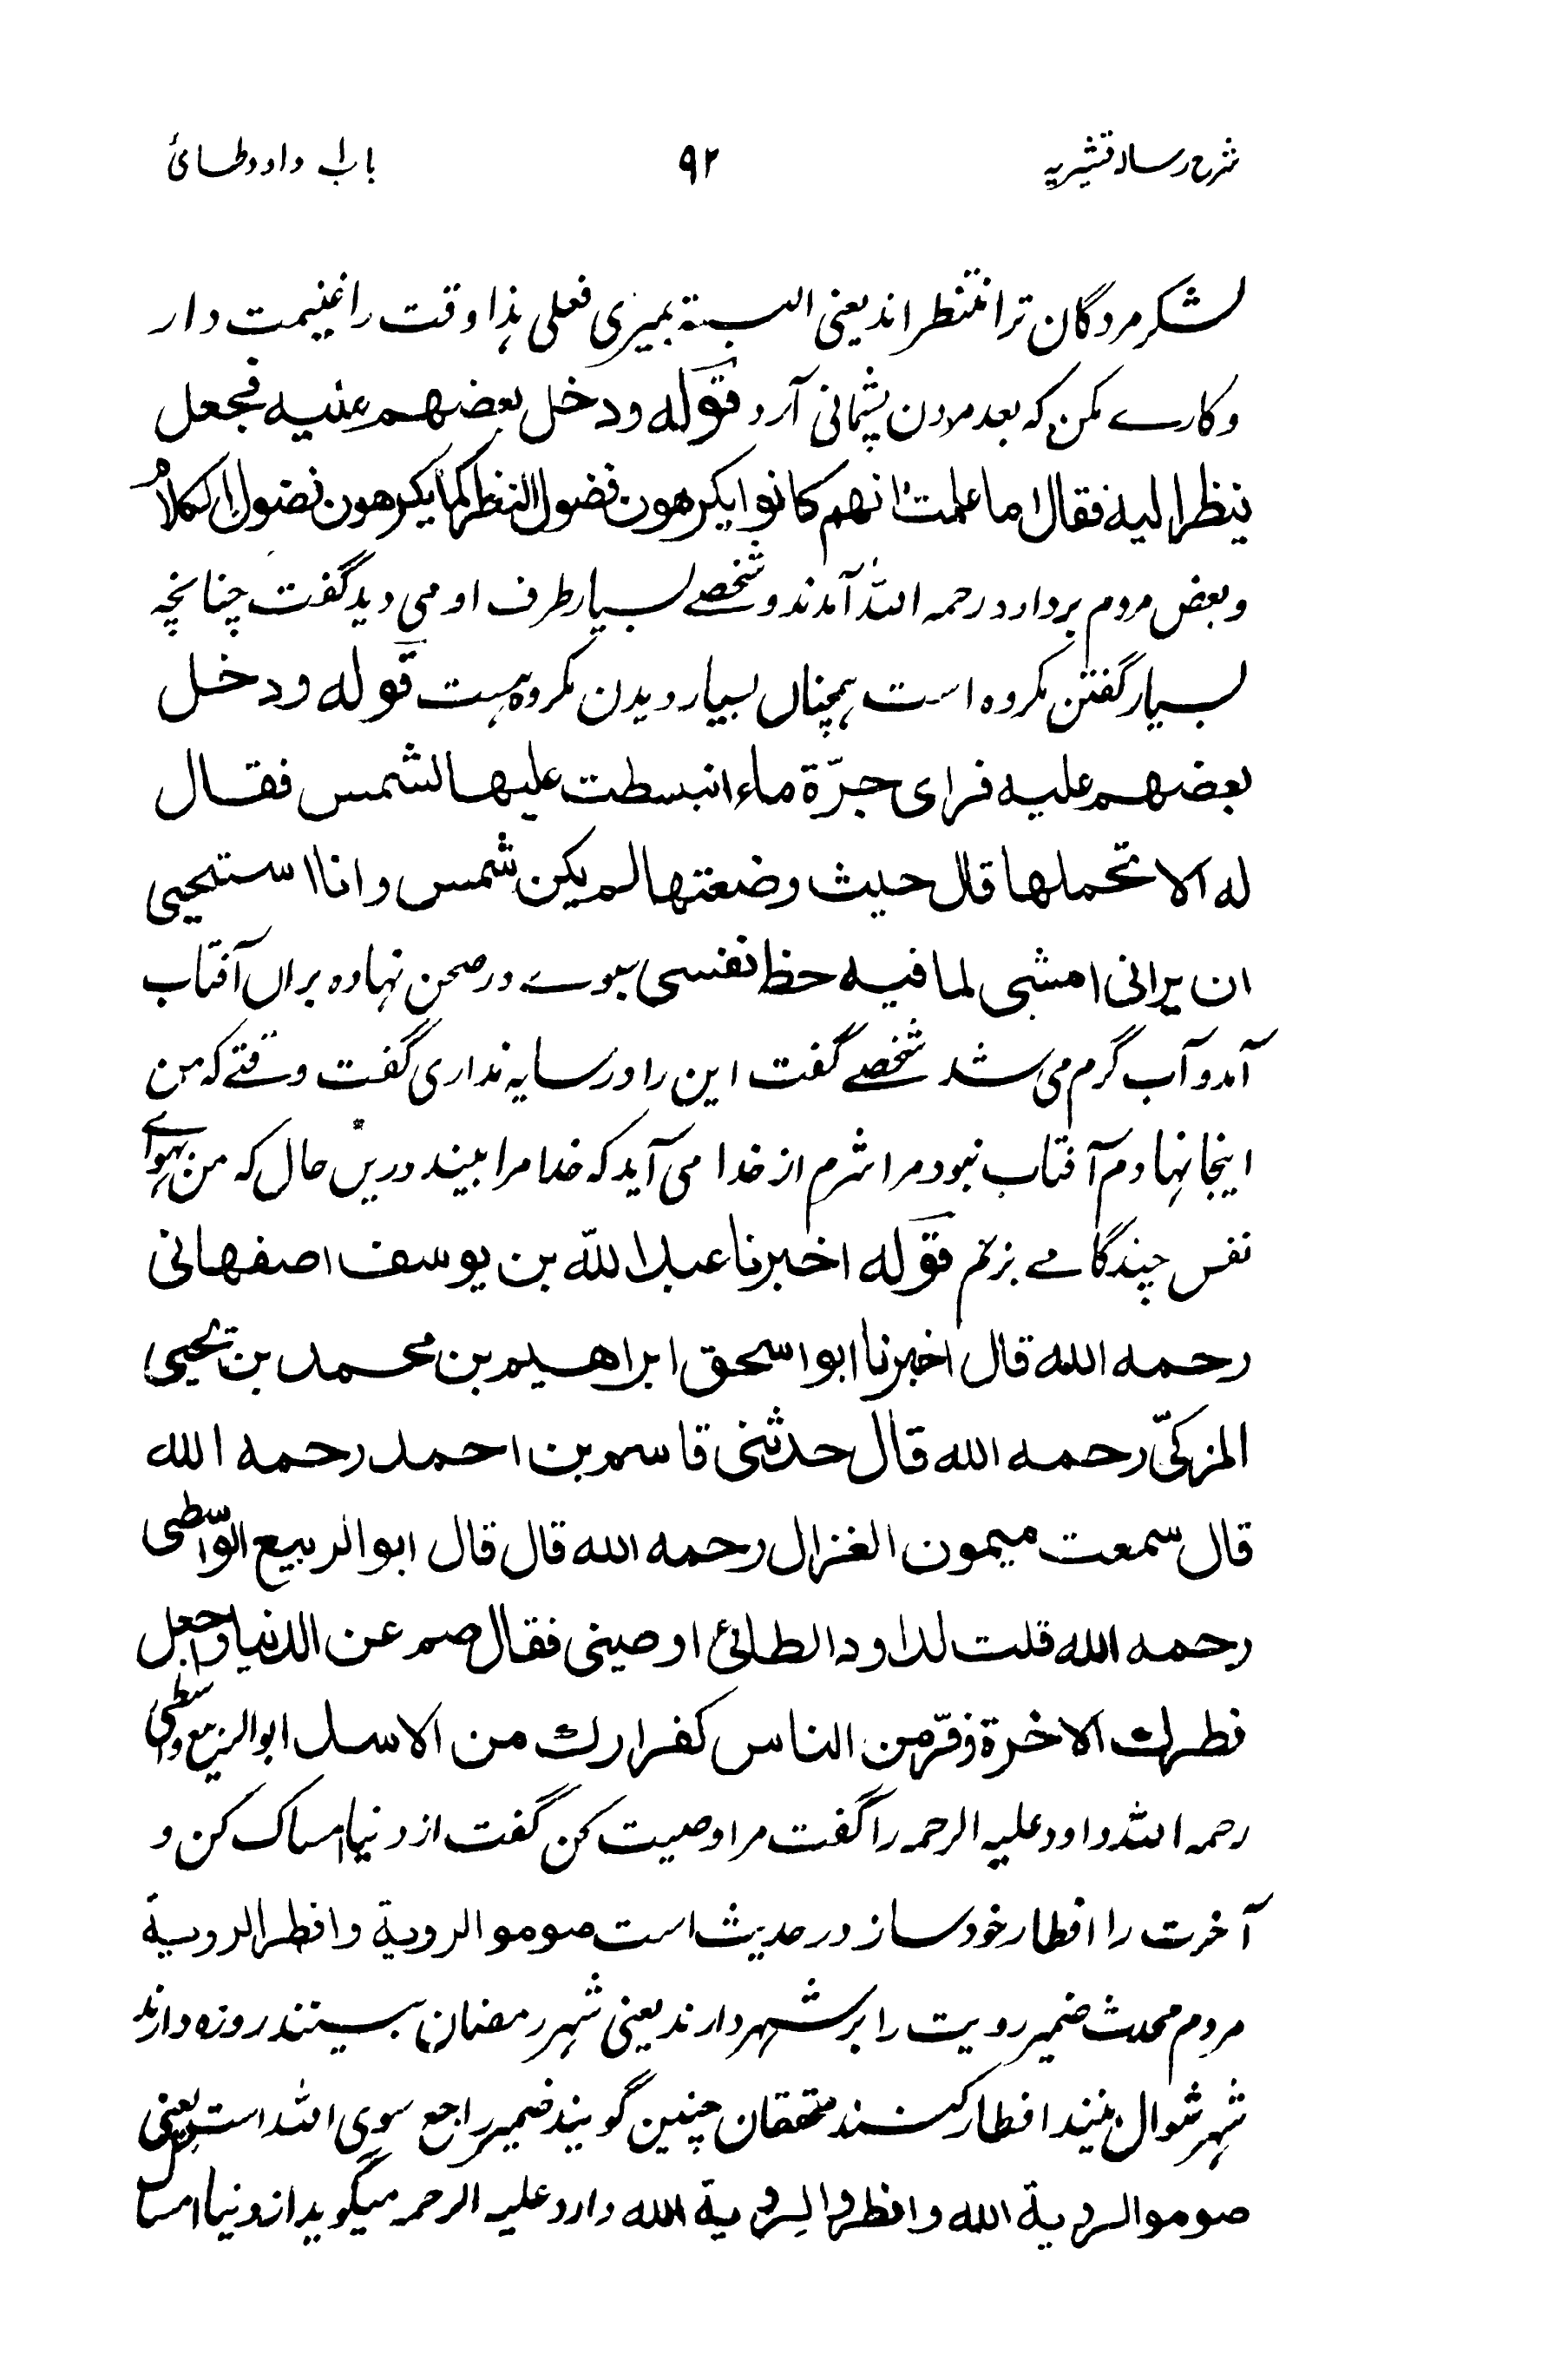 شرح رساله قشیریه ۹۲ باب داود طائی
لشکر مردگان ترا منتظر اند یعنی البته بمیری فعلی ہذا وقت را غنیمت دار
و کارے مکن کہ بعد مردن پشیمانی آرد قوله ودخل بعضهم علیه فجعل
ینظر الیه فقال اما علمت انهم کانوا یکرهون فضول النظر کما یکرهون فضول الکلام
و بعض مردم بر داود رحمہ اللہ آمدند و شخصے بسیار طرف او می دید گفت چنانچہ
بسیار گفتن مکروہ است ہمچناں بسیار دیدن مکروہ ہست قوله ودخل
بعضهم علیه فرای جرّة ماء انبسطت علیها الشمس فقال
له الا تحملها قال حیث وضعتها لم یکن شمس وانا استحیی
ان یرانی امشی لما فیه حظ نفسی سبوے در صحن نہادہ براں آفتاب
آمد و آب گرم می شد شخصے گفت این را در سایہ نداری گفت وقتے کہ من
اینجا نہادم آفتاب نبود مرا شرم از خدا می آید کہ خدا مرا بیند دریں حال کہ من بہوائے
نفس چند گامے بزنم قوله اخبرنا عبد اللّه بن یوسف اصفهانی
رحمه الله قال اخبرنا ابو اسحق ابراهیم بن محمد بن یحیی
المزکیّ رحمه الله قال حدثنی قاسم بن احمد رحمه الله
قال سمعت میمون الغزال رحمه الله قال قال ابو الربیع الواسطی
رحمه الله قلت لداود الطائی اوصینی فقال صم عن الدنیا واجعل
فطرك الاخرة وفرّ من الناس کفرارك من الاسد ابو الربیع واسطی
رحمہ اللہ داود علیہ الرحمہ را گفت مرا وصیت کن گفت از دنیا امساک کن و
آخرت را افطار خود ساز در حدیث است صوموا لرویة وافطر الرویة
مردم محدث ضمیر رویت را بر شہر دارند یعنی شہر رمضان بینند روزہ دارند
شہر شوال بینند افطار کنند محققان چنین گویند ضمیر راجع سوی اللہ است یعنی
صوموا لرویة الله وافطروا لرویة الله داود علیہ الرحمہ میگوید از دنیا امساک